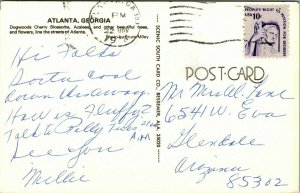 ATLANTA, GEORGIA
Dogwoods Cherry Blossoms, Azaleas and other beautiful trees,
and flowers, line the streets of Atlanta.
PM
PEOPLE'S RIGHT
10c
SCENIC SOUTH CARD CO., BESSEMER, ALA. 35020
POST-CARD
Hi Folks
Sorta cool
down this away.
How is Fluffy?
Talk to Billy
See You
Millie
Mr Mrs Al. Lane
6541 W. Eva
Glendale
Arizona
85302